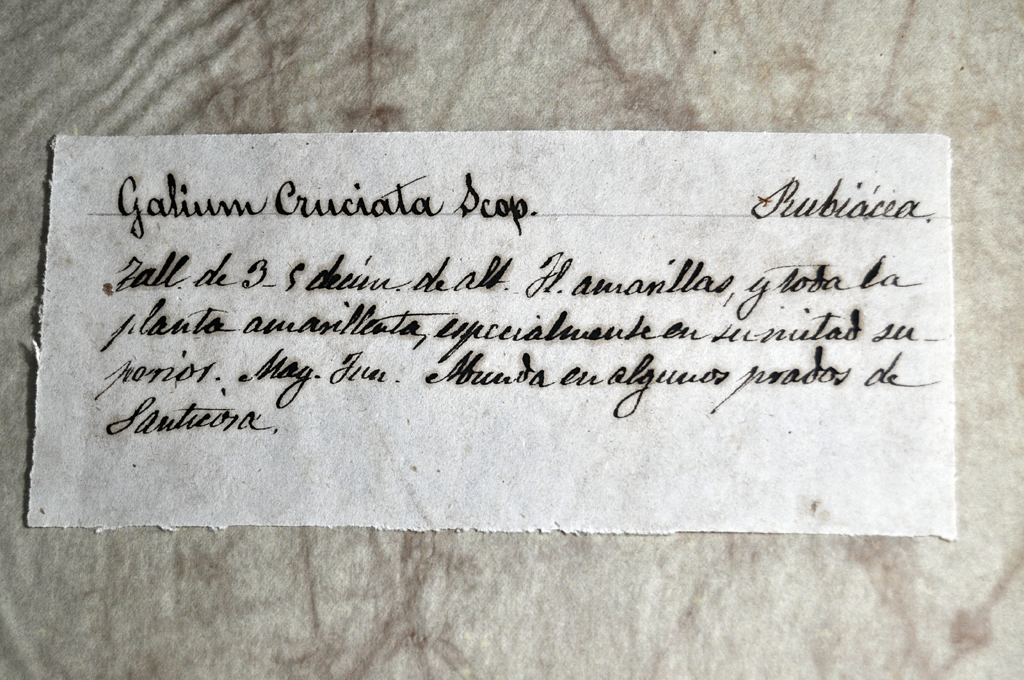 Galium Cruciata Scop. Rubiácea.
Tall. de 3-5 decim. de alt. Fl. amarillas, y toda la
planta amarillenta, especialmente en su mitad su-
perior. May. Jun. Abunda en algunos prados de